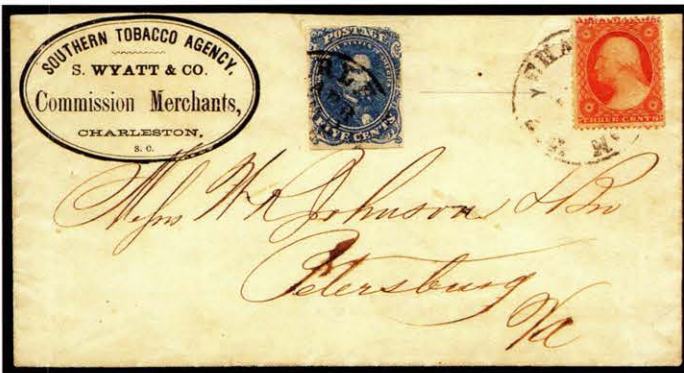 SOUTHERN TOBACCO AGENCY.
S. WYATT & CO.
Commission Merchants,
CHARLESTON,
S. C.
POSTAGE
FIVE CENTS
THREE CENTS
Messrs W R Johnson & Bro
Petersburg
Va